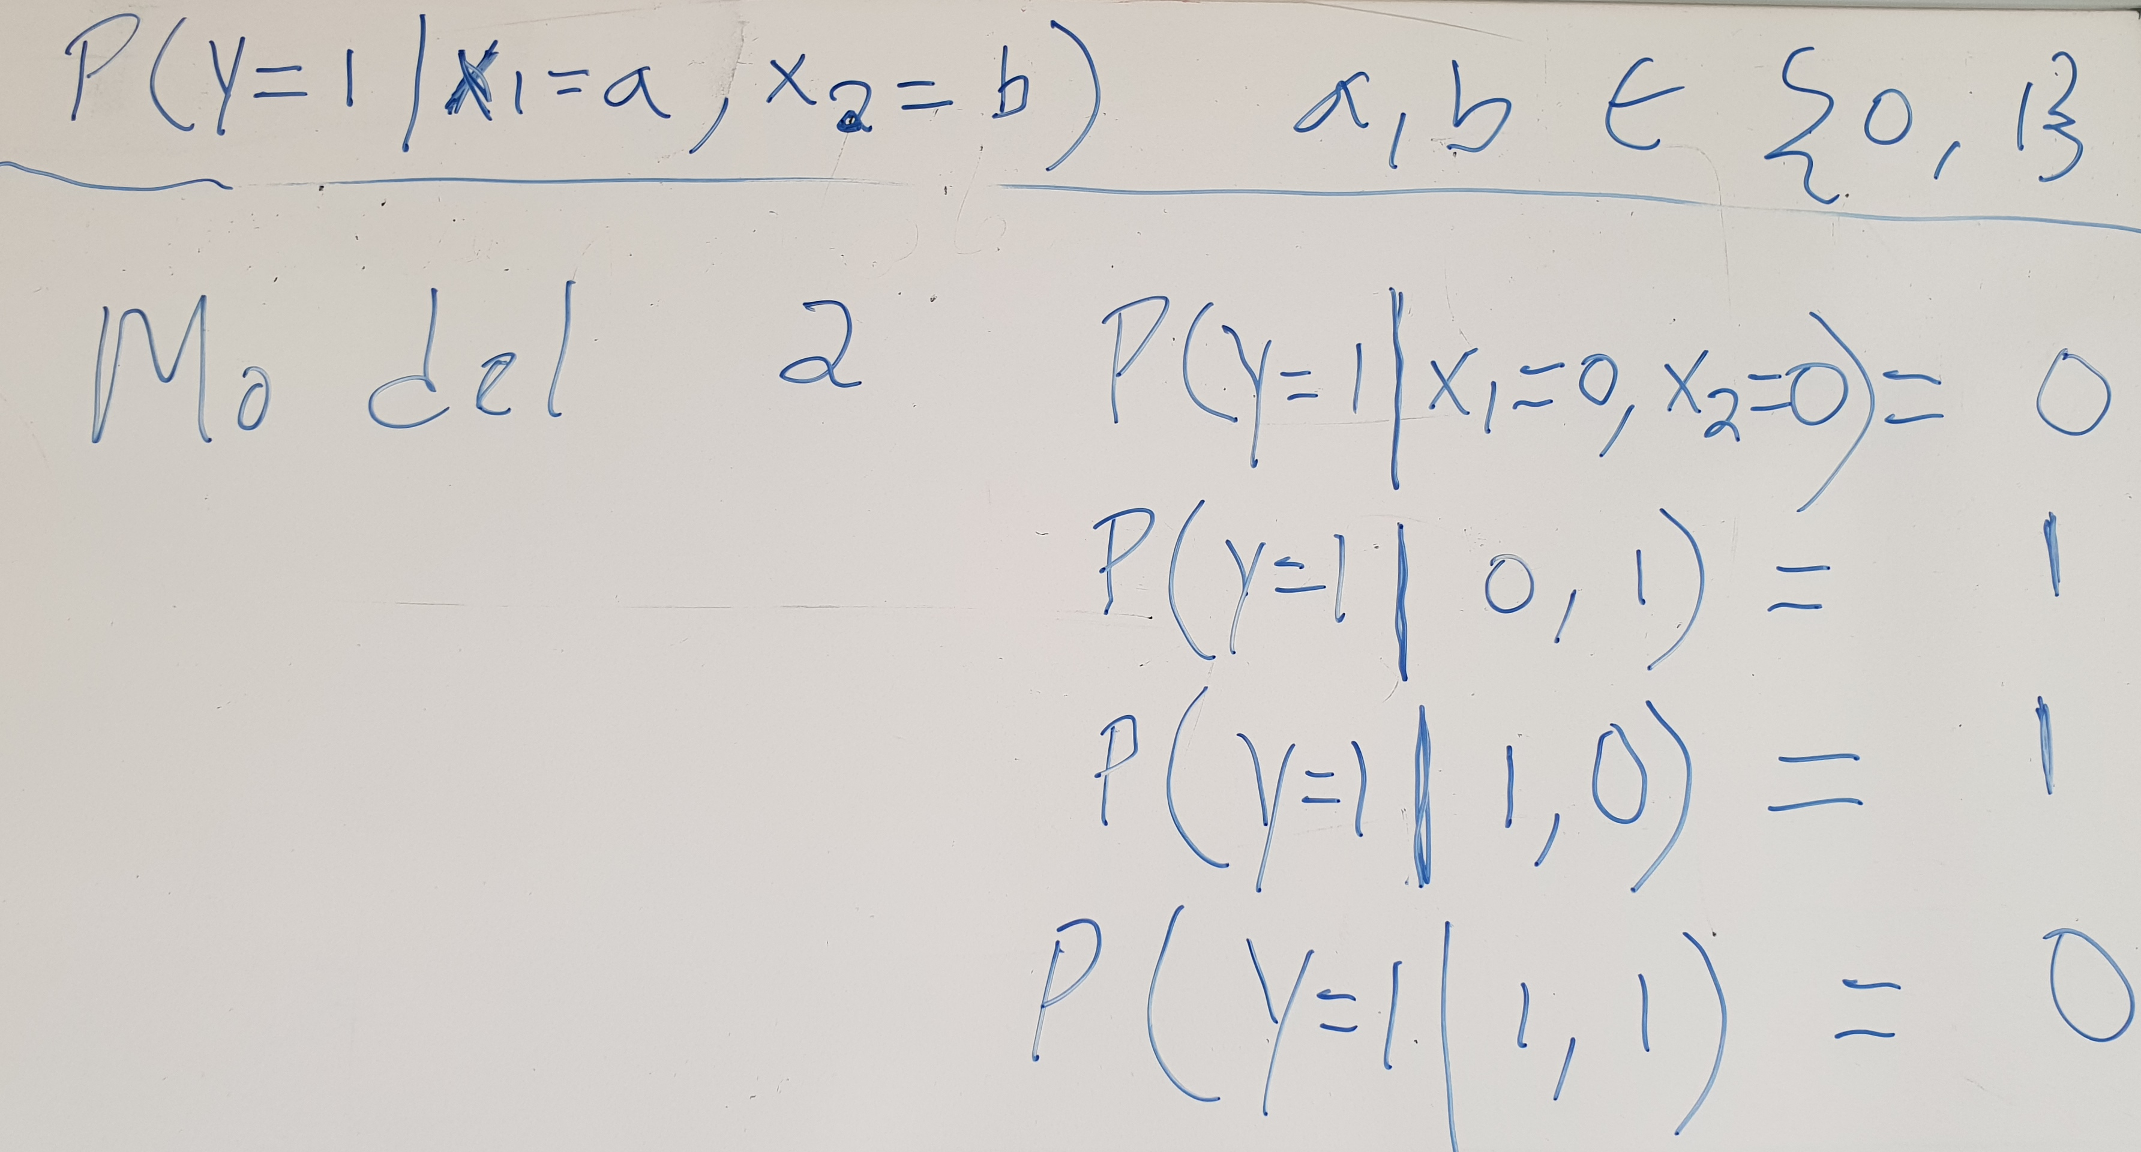 P(Y=1|X1=a, X2=b) a,b ∈ {0, 1}
Model 2 P(Y=1|X1=0, X2=0)= 0
P(Y=1| 0, 1) = 1
P(Y=1| 1,0) = 1
P(Y=1| 1, 1) = 0